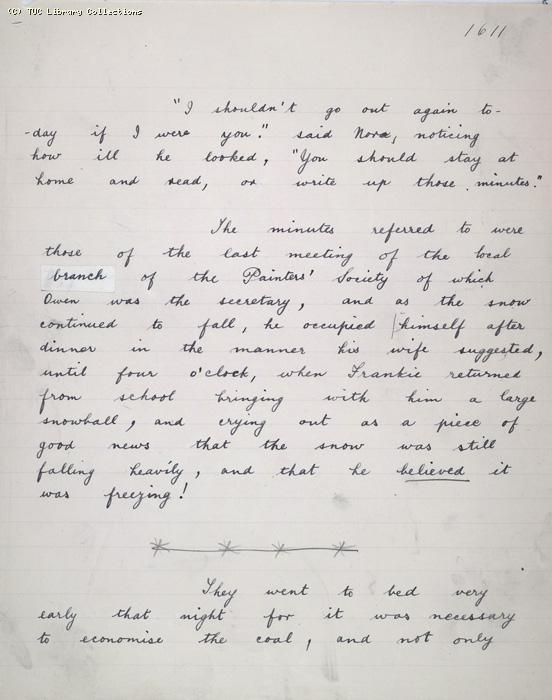 (C) TUC Library Collections
1611
"I shouldn't go out again to-
-day if I were you." said Nora, noticing
how ill he looked, "You should stay at
home and read, or write up those minutes."
The minutes referred to were
those of the last meeting of the local
branch of the Painters' Society of which
Owen was the secretary, and as the snow
continued to fall, he occupied himself after
dinner in the manner his wife suggested,
until four o'clock, when Frankie returned
from school bringing with him a large
snowball, and crying out as a piece of
good news that the snow was still
falling heavily, and that he believed it
was freezing!
They went to bed very
early that night for it was necessary
to economise the coal, and not only